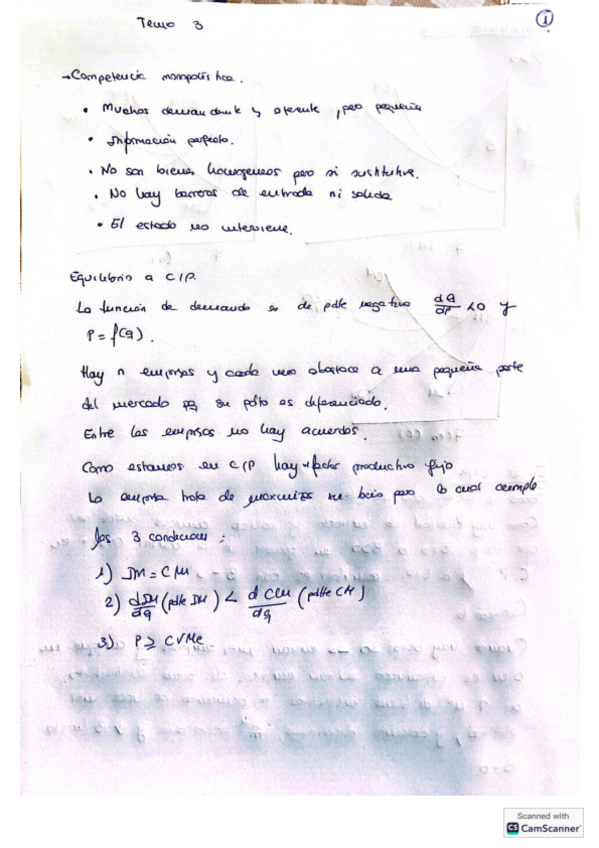 1
Tema 3
→ Competencia monopolistica.
• Muchos demandante y oferente, pero pequeña
• Información perfecta.
• No son bienes homogeneos pero si sustitutivos.
• No hay barreras de entrada ni salida
• El estado no interviene.
Equilibrio a C/P.
La función de demanda es de pdte negativa dQ/dP <0 y
P = f(q).
Hay n empresas y cada una abastece a una pequeña parte
del mercado pq su pdto es diferenciado.
Entre las empresas no hay acuerdos.
Como estamos en C/P hay factor productivo fijo
La empresa trata de maximizar su bcio para lo cual cumple
las 3 condiciones:
1) IM = CM
2) dIM/dq (pdte IM) < dCM/dq (pdte CM)
3) P ≥ CVMe
Scanned with
CS CamScanner